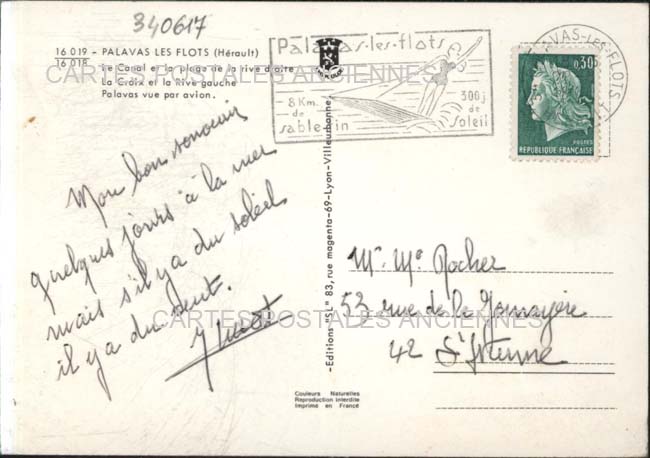 340617
16 019 - PALAVAS LES FLOTS (Hérault)
16 018
Le Canal et la plage de la rive droite
La Croix et la Rive gauche
Palavas vue par avion.
CARTES POSTALES ANCIENNES
Palavas-les-flots
8 Km. de sable fin
300 j de Soleil
PALAVAS-LES-FLOTS
0,30
POSTES
REPUBLIQUE FRANÇAISE
Mon bon souvenir
quelques jours à la mer
mais s'il y a du soleil
il y a du vent.
-Editions "SL" 83, rue magenta-69-Lyon-Villeurbanne-
Mr. Me Rocher
53 rue de la
42 St Etienne
CARTES POSTALES ANCIENNES
Couleurs Naturelles
Reproduction interdite
Imprimé en France